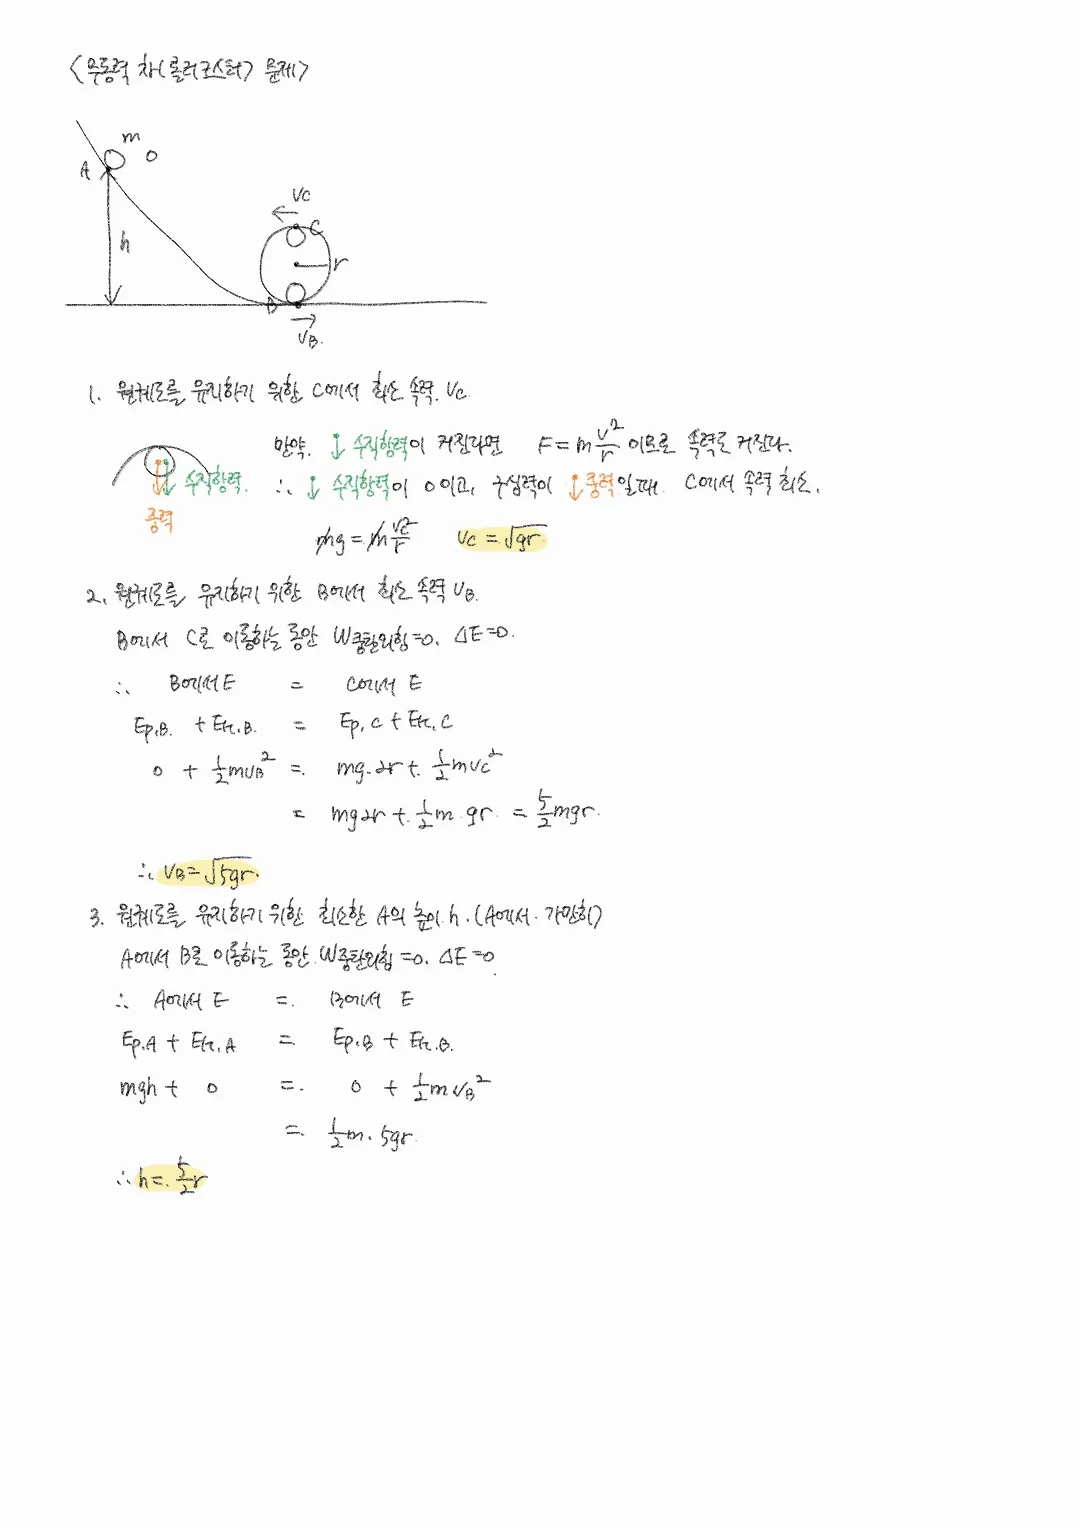 <무동력 차(롤러코스터) 문제>
m
A
h
VC
C
r
B
VB.
1. 원궤도를 유지하기 위한 C에서 최소 속력. Vc
만약. ↓ 수직항력이 커진다면 F = m v²/r 이므로 속력도 커진다.
수직항력. ∴ ↓ 수직항력이 0이고, 구심력이 ↓중력일때 C에서 속력 최소.
중력
mg = m vc²/r Vc = √gr
2. 원궤도를 유지하기 위한 B에서 최소 속력 VB.
B에서 C로 이동하는 동안 W중탄외힘=0. ΔE=0.
∴ B에서 E = C에서 E
Ep,B. + Ek,B. = Ep,C + Ek,C
0 + ½mvB² = mg·2r + ½mvc²
= mg2r + ½m·gr = 5/2mgr.
∴ VB = √5gr.
3. 원궤도를 유지하기 위한 최소한 A의 높이 h. (A에서 가만히)
A에서 B로 이동하는 동안 W중탄외힘=0. ΔE=0
∴ A에서 E = B에서 E
Ep,A + Ek,A = Ep,B + Ek,B.
mgh + 0 = 0 + ½mvB²
= ½m·5gr.
∴ h = 5/2r